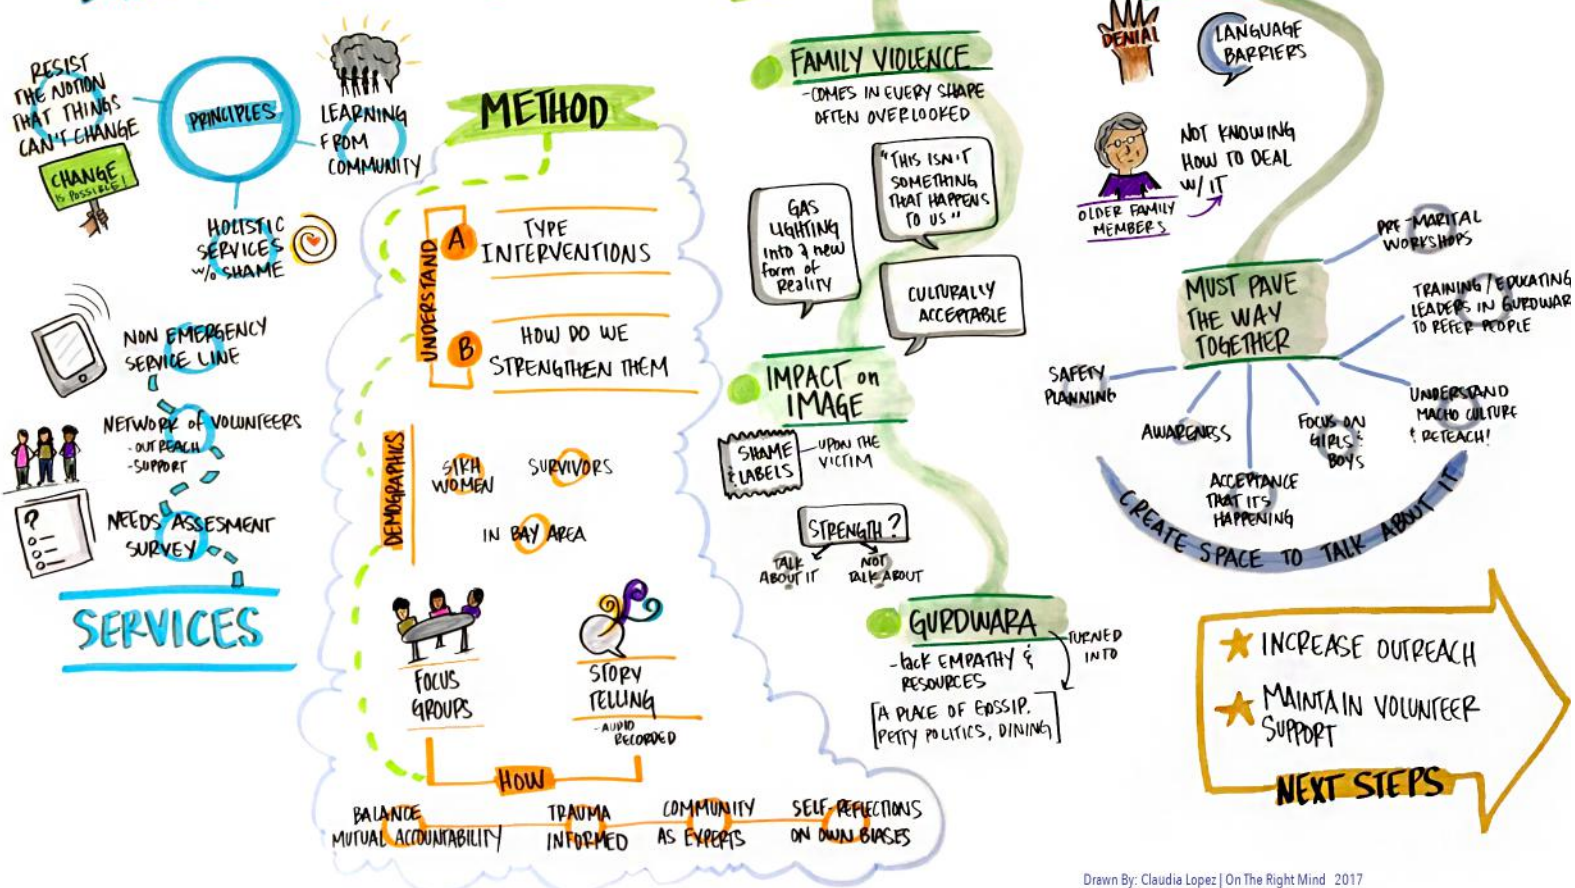 RESIST
THE NOTION
THAT THINGS
CAN'T CHANGE
CHANGE
IS POSSIBLE!
PRINCIPLES
LEARNING
FROM
COMMUNITY
HOLISTIC
SERVICES
w/o SHAME
NON EMERGENCY
SERVICE LINE
NETWORK of VOLUNTEERS
- OUTREACH
- SUPPORT
?
NEEDS ASSESMENT
SURVEY
SERVICES
METHOD
UNDERSTAND
A
TYPE
INTERVENTIONS
B
HOW DO WE
STRENGTHEN THEM
DEMOGRAPHICS
SIKH
WOMEN
SURVIVORS
IN BAY AREA
FOCUS
GROUPS
STORY
TELLING
- AUDIO
RECORDED
HOW
BALANCE
MUTUAL ACCOUNTABILITY
TRAUMA
INFORMED
COMMUNITY
AS EXPERTS
SELF-REFLECTIONS
ON OWN BIASES
FAMILY VIOLENCE
- COMES IN EVERY SHAPE
OFTEN OVERLOOKED
"THIS ISN'T
SOMETHING
THAT HAPPENS
TO US"
GAS
LIGHTING
into a new
form of
Reality
CULTURALLY
ACCEPTABLE
IMPACT on
IMAGE
SHAME
& LABELS
- UPON THE
VICTIM
STRENGTH?
TALK
ABOUT IT
NOT
TALK ABOUT
GURDWARA
- lack EMPATHY &
RESOURCES
TURNED
INTO
[A PLACE OF GOSSIP,
PETTY POLITICS, DINING]
DENIAL
LANGUAGE
BARRIERS
NOT KNOWING
HOW TO DEAL
W/ IT
OLDER FAMILY
MEMBERS
MUST PAVE
THE WAY
TOGETHER
PRE-MARITAL
WORKSHOPS
TRAINING/EDUCATING
LEADERS IN GURDWARA
TO REFER PEOPLE
UNDERSTAND
MACHO CULTURE
& RETEACH!
FOCUS ON
GIRLS &
BOYS
ACCEPTANCE
THAT IT'S
HAPPENING
AWARENESS
SAFETY
PLANNING
CREATE SPACE TO TALK ABOUT IT
INCREASE OUTREACH
MAINTAIN VOLUNTEER
SUPPORT
NEXT STEPS
Drawn By: Claudia Lopez | On The Right Mind 2017